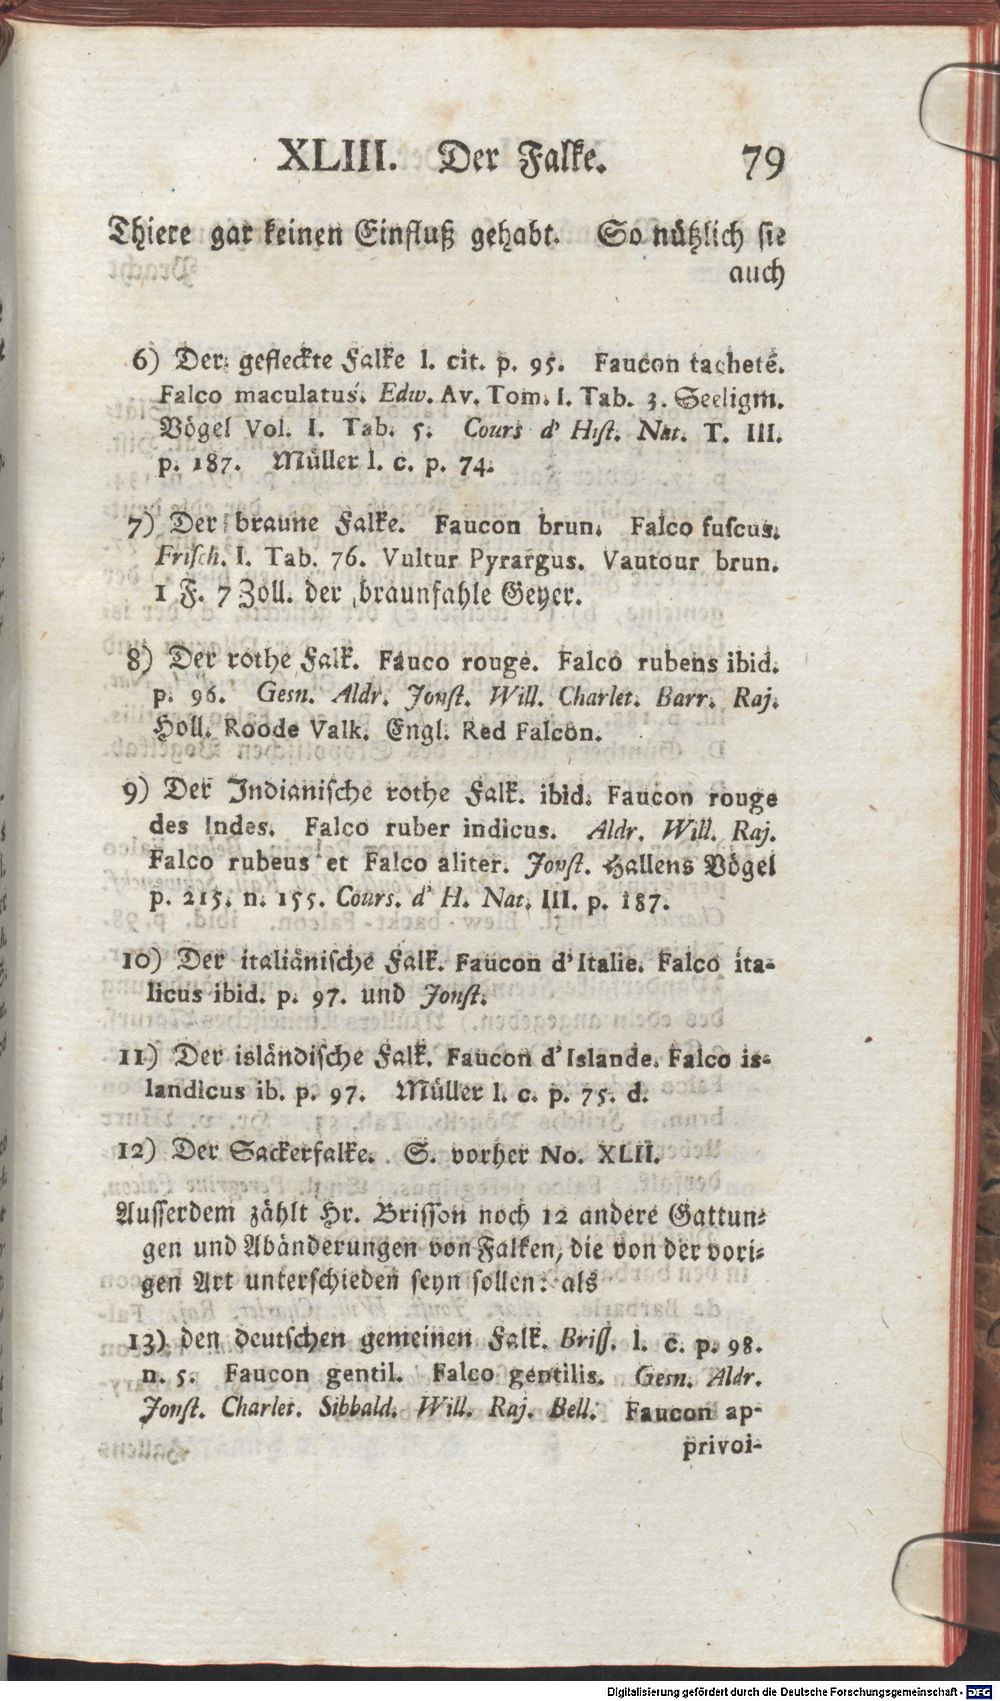 XLIII. Der Falke. 79
Thiere gar keinen Einfluß gehabt. So nützlich sie
auch
6) Der gefleckte Falke l. cit. p. 95. Faucon tacheté.
Falco maculatus. Edw. Av. Tom. I. Tab. 3. Seeligm.
Vögel Vol. I. Tab. 5. Cours d' Hist. Nat. T. III.
p. 187. Müller l. c. p. 74.
7) Der braune Falke. Faucon brun. Falco fuscus.
Frisch. I. Tab. 76. Vultur Pyrargus. Vautour brun.
1 F. 7 Zoll. der braunfahle Geyer.
8) Der rothe Falk. Fauco rouge. Falco rubens ibid.
p. 96. Gesn. Aldr. Jonst. Will. Charlet. Barr. Raj.
Holl. Roode Valk. Engl. Red Falcon.
9) Der Indianische rothe Falk. ibid. Faucon rouge
des Indes. Falco ruber indicus. Aldr. Will. Raj.
Falco rubeus et Falco aliter. Jonst. Hallens Vögel
p. 215. n. 155. Cours. d' H. Nat. III. p. 187.
10) Der italiänische Falk. Faucon d'Italie. Falco ita-
licus ibid. p. 97. und Jonst.
11) Der isländische Falk. Faucon d'Islande. Falco is-
landicus ib. p. 97. Müller l. c. p. 75. d.
12) Der Sackerfalke. S. vorher No. XLII.
Ausserdem zählt Hr. Brisson noch 12 andere Gattun-
gen und Abänderungen von Falken, die von der vori-
gen Art unterschieden seyn sollen: als
13) den deutschen gemeinen Falk. Briss. l. c. p. 98.
n. 5. Faucon gentil. Falco gentilis. Gesn. Aldr.
Jonst. Charlet. Sibbald. Will. Raj. Bell. Faucon ap-
privoi-
Digitalisierung gefördert durch die Deutsche Forschungsgemeinschaft - DFG